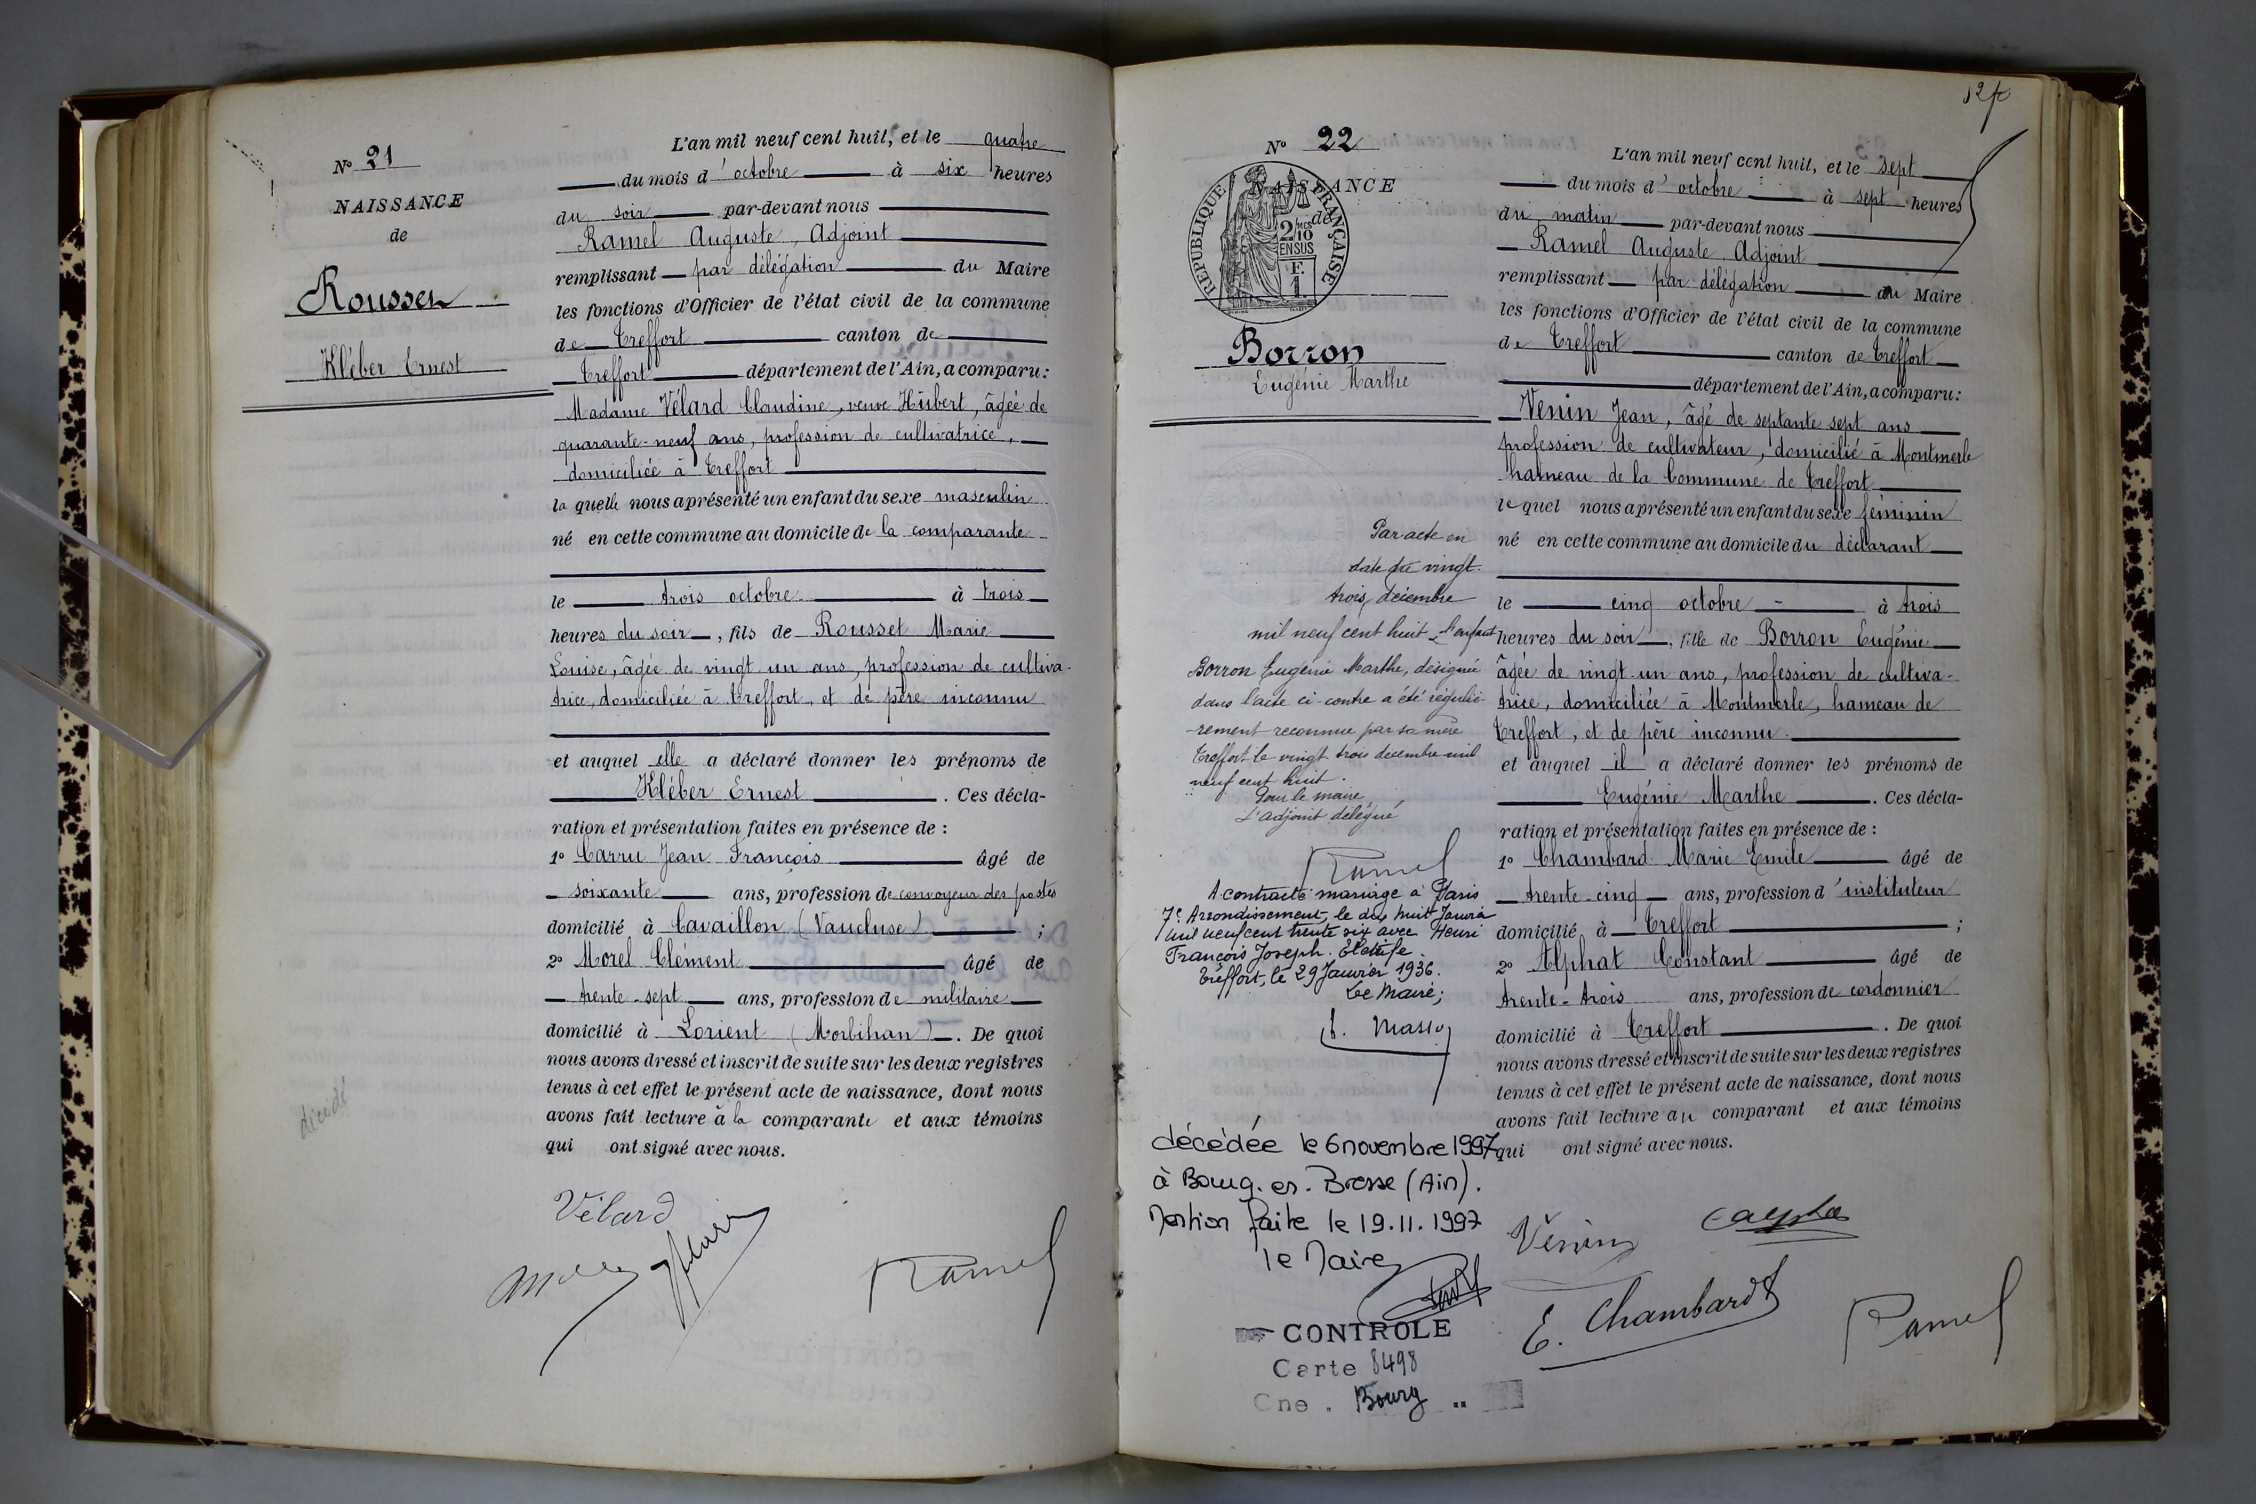 Nº 21
NAISSANCE
de
Rousset
Kléber Ernest
L'an mil neuf cent huit, et le quatre
du mois d'octobre à six heures
du soir par-devant nous
Ramel Auguste, Adjoint
remplissant par délégation du Maire
les fonctions d'Officier de l'état civil de la commune
de Treffort canton de
Treffort département de l'Ain, a comparu:
Madame Vélard Claudine, veuve Hubert, âgée de
quarante-neuf ans, profession de cultivatrice,
domiciliée à Treffort
la quelle nous a présenté un enfant du sexe masculin
né en cette commune au domicile de la comparante
le trois octobre à trois
heures du soir, fils de Rousset Marie
Louise, âgée de vingt un ans, profession de cultiva-
trice, domiciliée à Treffort, et de père inconnu
et auquel elle a déclaré donner les prénoms de
Kléber Ernest. Ces décla-
ration et présentation faites en présence de :
1º Carru Jean François âgé de
soixante ans, profession de convoyeur des postes
domicilié à Cavaillon (Vaucluse) ;
2º Morel Clément âgé de
trente-sept ans, profession de militaire
domicilié à Lorient (Morbihan). De quoi
nous avons dressé et inscrit de suite sur les deux registres
tenus à cet effet le présent acte de naissance, dont nous
avons fait lecture à la comparante et aux témoins
qui ont signé avec nous.
décédé
Vélard
Ramel
Nº 22
NAISSANCE
de
REPUBLIQUE FRANÇAISE
2/10 MES
EN SUS
F.
1.
Borron
Eugénie Marthe
L'an mil neuf cent huit, et le sept
du mois d'octobre à sept heures
du matin par-devant nous
Ramel Auguste Adjoint
remplissant par délégation du Maire
les fonctions d'Officier de l'état civil de la commune
de Treffort canton de Treffort
département de l'Ain, a comparu:
Venin Jean, âgé de septante sept ans
profession de cultivateur, domicilié à Montmerle
hameau de la Commune de Treffort
le quel nous a présenté un enfant du sexe féminin
né en cette commune au domicile du déclarant
le cinq octobre à trois
heures du soir, fille de Borron Eugénie
âgée de vingt-un ans, profession de cultiva-
trice, domiciliée à Montmerle, hameau de
Treffort, et de père inconnu.
et auquel il a déclaré donner les prénoms de
Eugénie Marthe. Ces décla-
ration et présentation faites en présence de :
1º Chambard Marie Emile âgé de
trente-cinq ans, profession d'instituteur
domicilié à Treffort ;
2º Alphat Constant âgé de
trente-trois ans, profession de cordonnier
domicilié à Treffort. De quoi
nous avons dressé et inscrit de suite sur les deux registres
tenus à cet effet le présent acte de naissance, dont nous
avons fait lecture au comparant et aux témoins
qui ont signé avec nous.
Par acte en
date du vingt.
trois décembre
mil neuf cent huit l'enfant
Borron Eugénie Marthe, désignée
dans l'acte ci-contre a été réguliè-
rement reconnue par sa mère
Treffort le vingt trois décembre mil
neuf cent huit.
Pour le maire
L'adjoint délégué
Ramel
A contracté mariage à Paris
7e Arrondissement, le dix huit Janvier
mil neuf cent trente six avec Henri
François Joseph
Treffort, le 29 Janvier 1936.
Le Maire;
décédée le 6 novembre 1997
à Bourg-en-Bresse (Ain).
Mention faite le 19.11.1997
le Maire
CONTROLE
Carte 8498
Cne. Bourg
Vénin
E. Chambard
Ramel